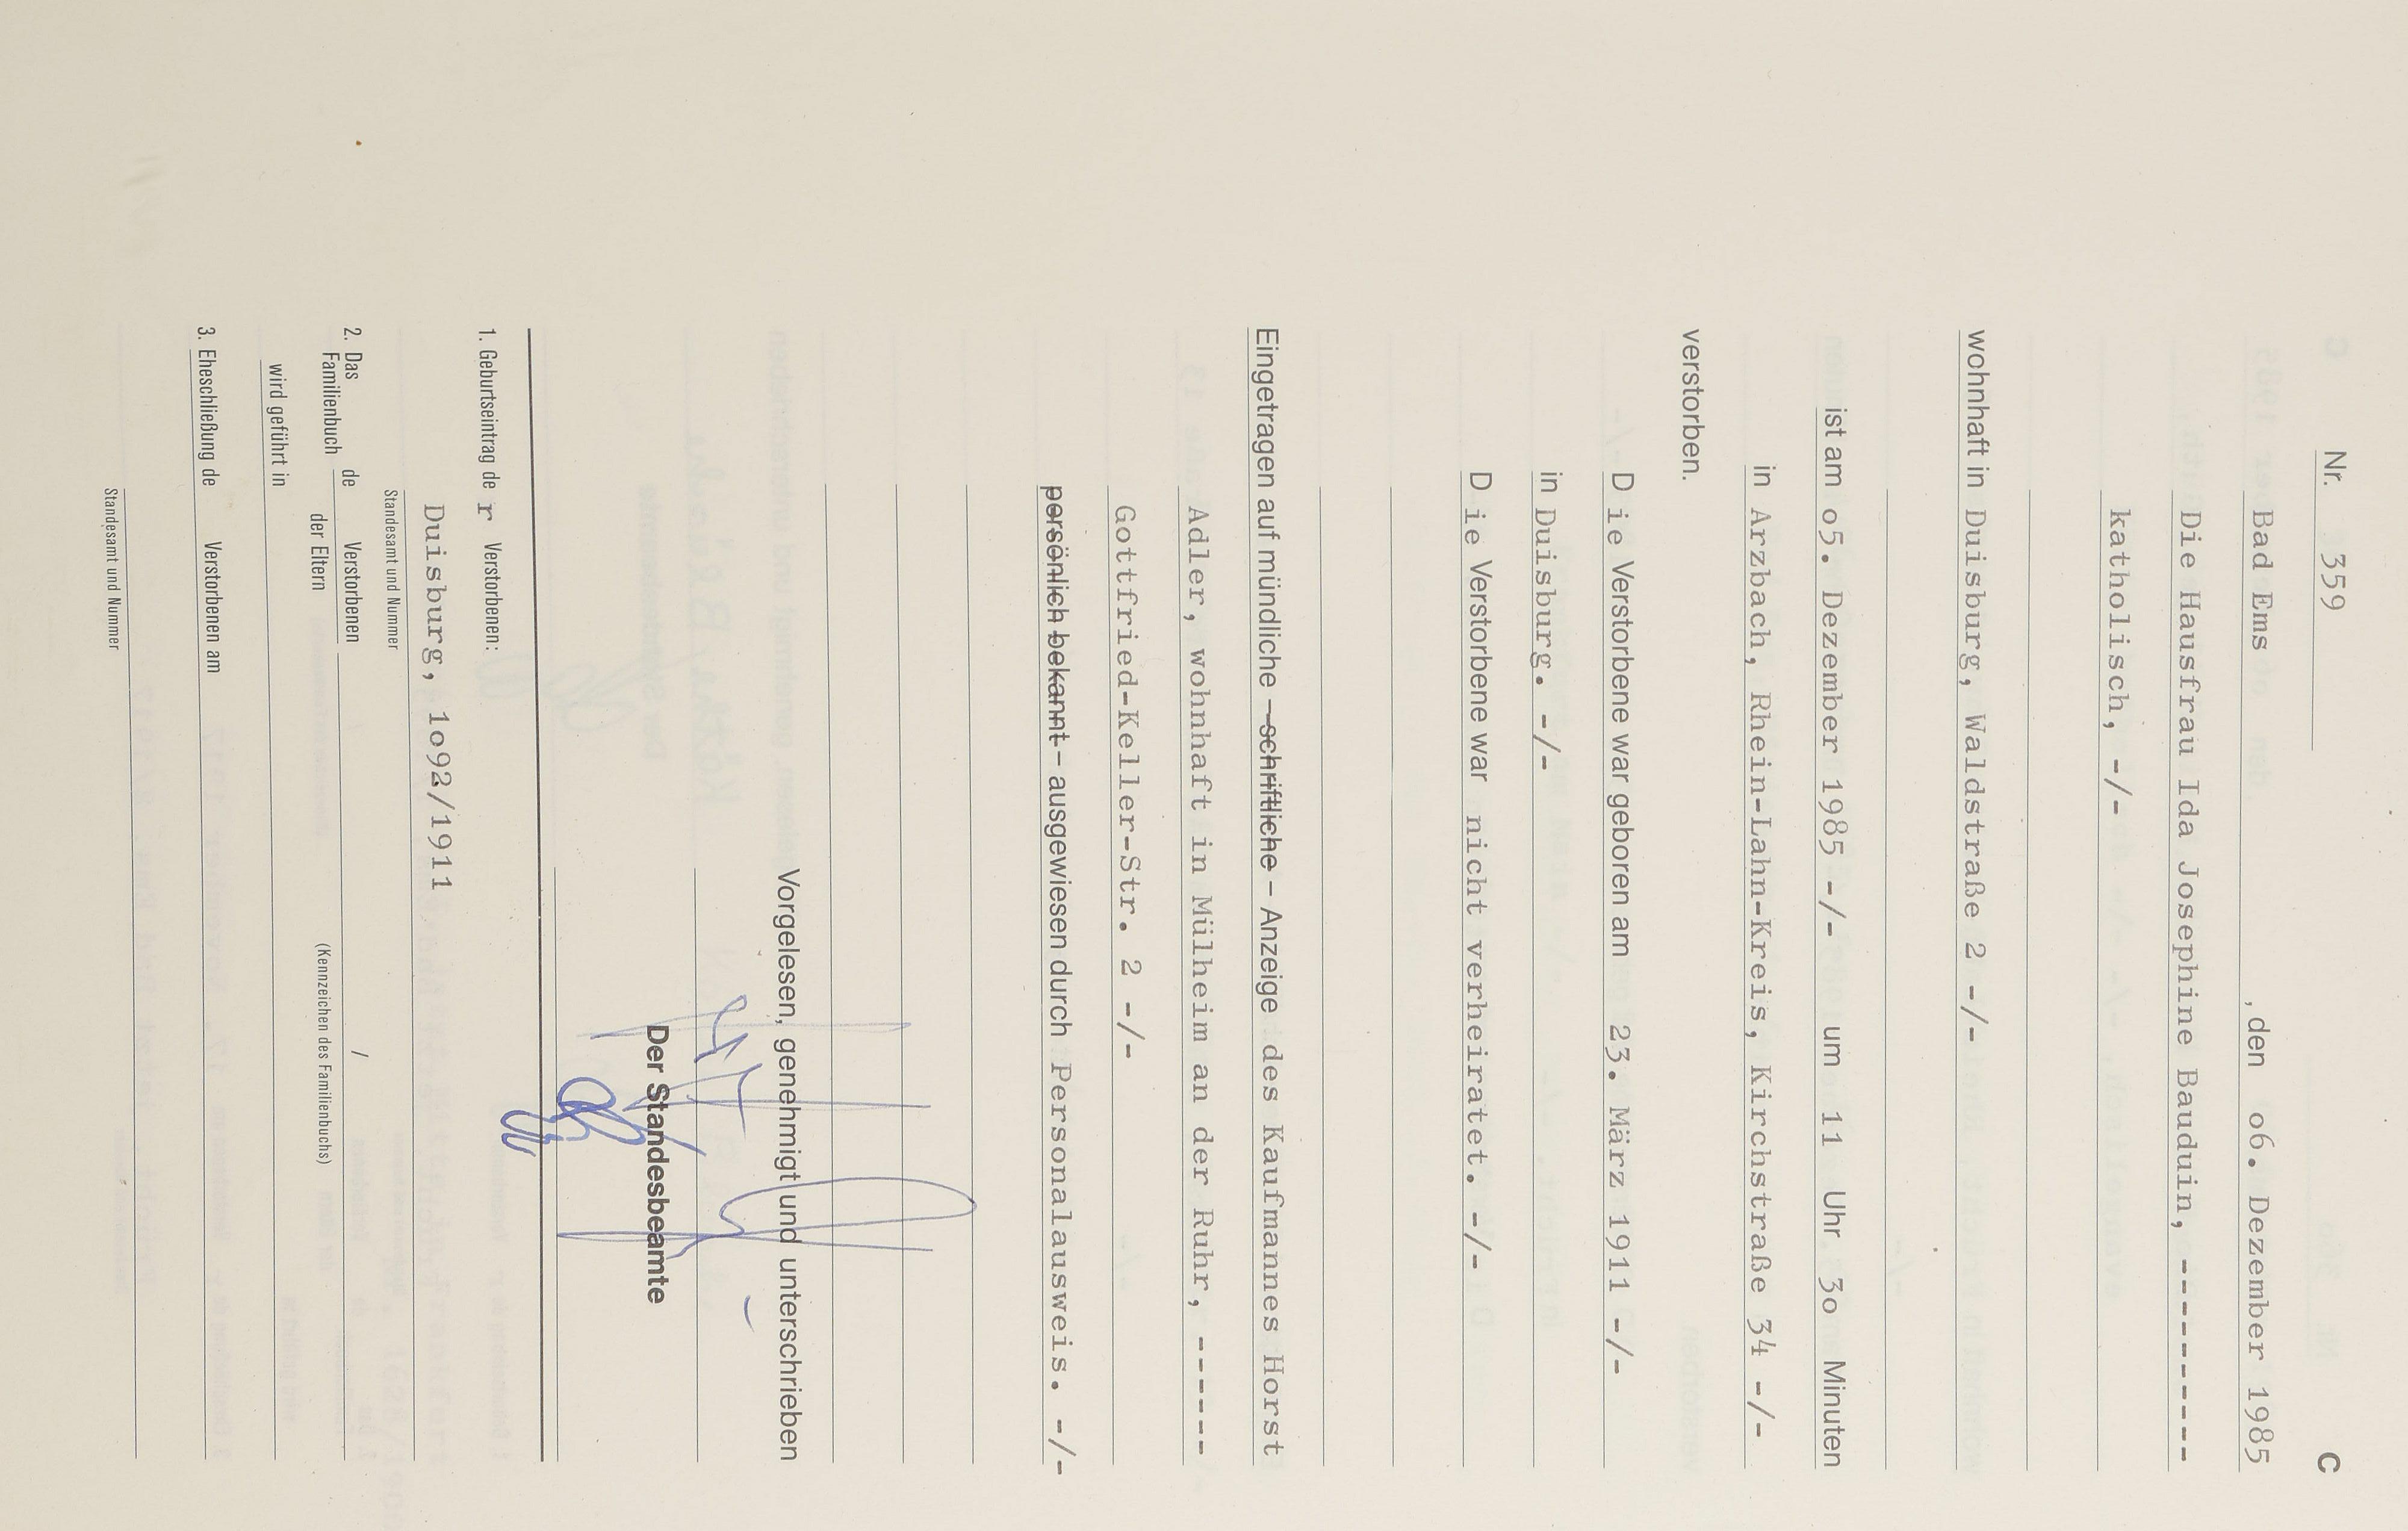 Nr. 359 C
Bad Ems, den o6. Dezember 1985
Die Hausfrau Ida Josephine Bauduin, ---------
katholisch, -/-
wohnhaft in Duisburg, Waldstraße 2 -/-
ist am o5. Dezember 1985 -/- um 11 Uhr 3o Minuten
in Arzbach, Rhein-Lahn-Kreis, Kirchstraße 34 -/-
verstorben.
D ie Verstorbene war geboren am 23. März 1911 -/-
in Duisburg. -/-
D ie Verstorbene war nicht verheiratet. -/-
Eingetragen auf mündliche – schriftliche – Anzeige des Kaufmannes Horst
Adler, wohnhaft in Mülheim an der Ruhr, ------
Gottfried-Keller-Str. 2 -/-
persönlich bekannt – ausgewiesen durch Personalausweis. -/-
Vorgelesen, genehmigt und unterschrieben
Der Standesbeamte
1. Geburtseintrag de r Verstorbenen:
Duisburg, 1o92/1911
Standesamt und Nummer
2. Das Familienbuch de Verstorbenen der Eltern /
(Kennzeichen des Familienbuchs)
wird geführt in
3. Eheschließung de Verstorbenen am
Standesamt und Nummer